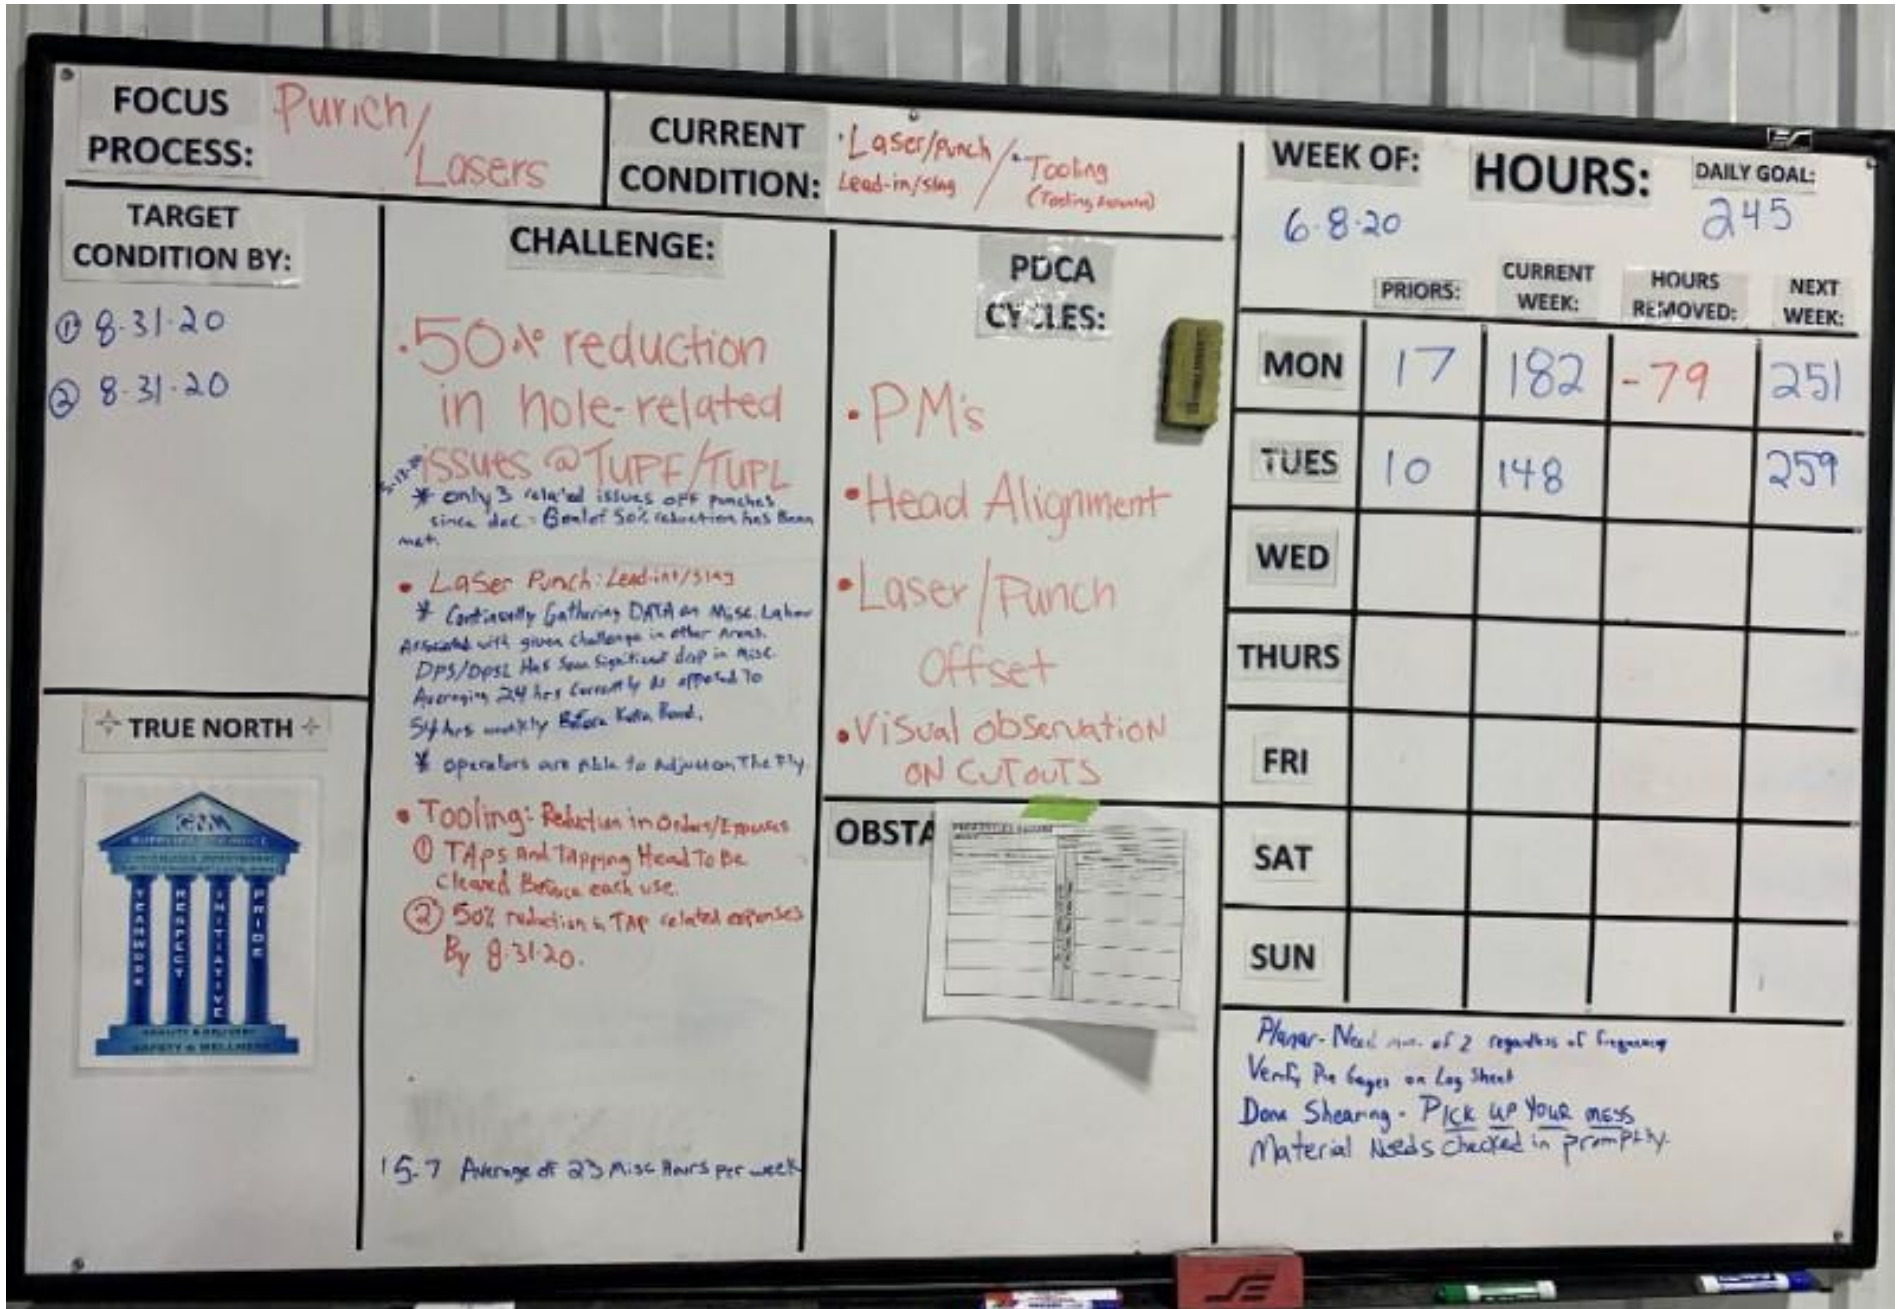 FOCUS
PROCESS:
Punch/
Lasers
CURRENT
CONDITION:
• Laser/punch /
Lead-in/slag
• Tooling
(Tooling
TARGET
CONDITION BY:
① 8-31-20
② 8-31-20
TRUE NORTH
TEAMWORK
RESPECT
INITIATIVE
PRIDE
QUALITY & DELIVERY
SAFETY & WELLNESS
CHALLENGE:
• 50% reduction
in hole-related
issues @ TUPF/TUPL
* only 3 related issues OFF punches
since dec - Goal of 50% reduction has Been
met.
• Laser Punch: Lead-in/slag
* Continually Gathering DATA on Misc. Labor
Associated with given challenge in other Areas.
DPS/DPSL Has Seen Significant drop in misc.
Averaging 24 hrs Currently as opposed To
54 hrs weekly Before
* operators are Able to Adjust on The Fly.
• Tooling: Reduction in Orders/Expenses
① TAps And TApping Head To Be
Cleared Before each use.
② 50% reduction in TAP related expenses
By 8-31-20.
15.7 Average of 23 Misc Hours per week
PDCA
CYCLES:
• PM's
• Head Alignment
• Laser/Punch
Offset
• Visual observation
ON CUTOUTS
OBSTA
WEEK OF:
6-8-20
HOURS:
DAILY GOAL:
245
PRIORS:
CURRENT
WEEK:
HOURS
REMOVED:
NEXT
WEEK:
MON 17 182 -79 251
TUES 10 148 259
WED
THURS
FRI
SAT
SUN
Planar - Need min. of 2 regardless of frequency
Verify Pin Gages on Log Sheet
Done Shearing - PICK UP YOUR MESS
Material Needs checked in promptly.